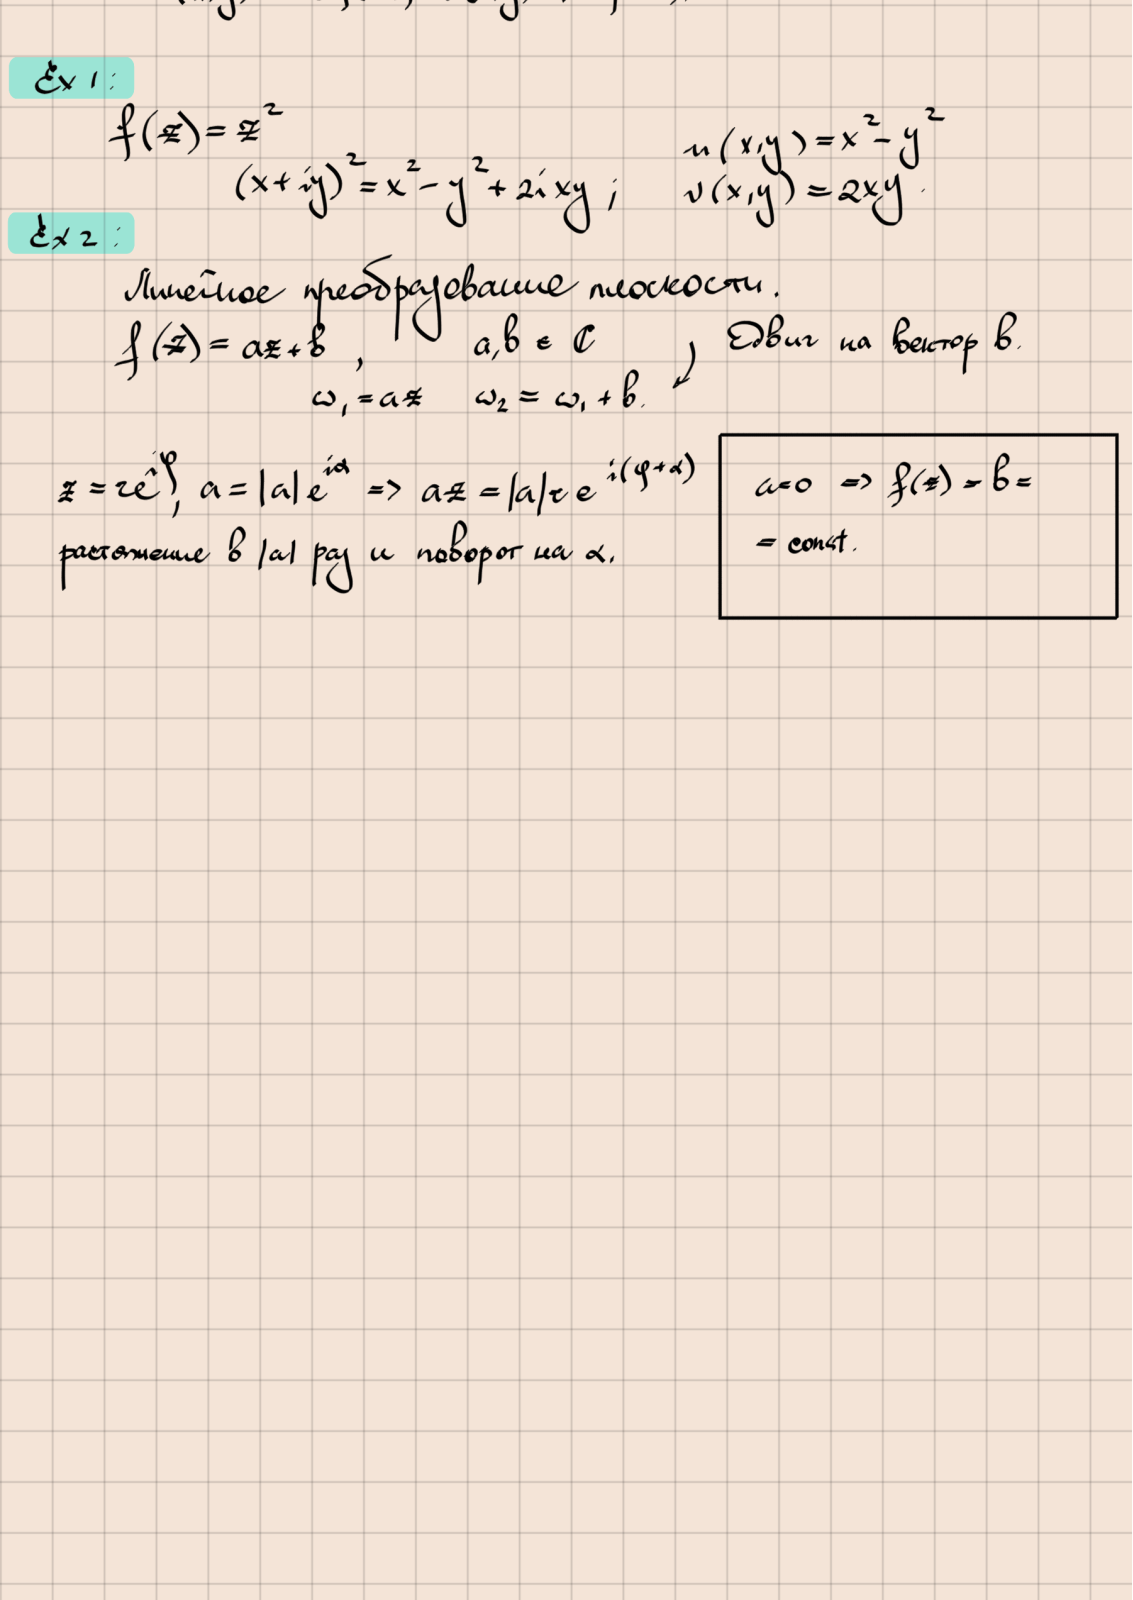 Ex 1:
f(z) = z²
(x+iy)² = x² - y² + 2ixy ; u(x,y) = x² - y²
v(x,y) = 2xy.
Ex 2:
Линейное преобразование плоскости.
f(z) = az+b, a,b ∈ ℂ Сдвиг на вектор b.
ω₁ = az ω₂ = ω₁ + b.
z = re^{iφ}, a = |a|e^{iα} => az = |a|r e^{i(φ+α)}
растяжение в |a| раз и поворот на α.
a=0 => f(z) = b =
= const.